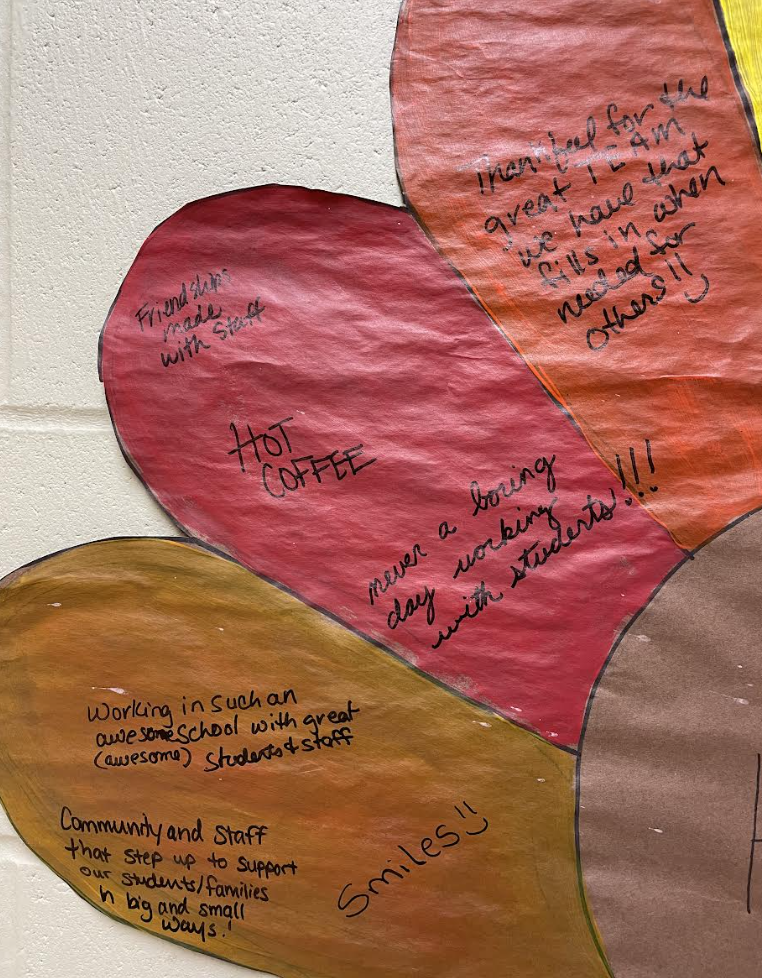 Thankful for the
great TEAM
we have that
fills in when
needed for
others!!
Friendships
made
with Staff
HOT
COFFEE
never a boring
day working
with students!!!
Working in such an
awesome school with great
(awesome) students & staff
Community and staff
that step up to support
our students/families
in big and small
ways!
Smiles!!